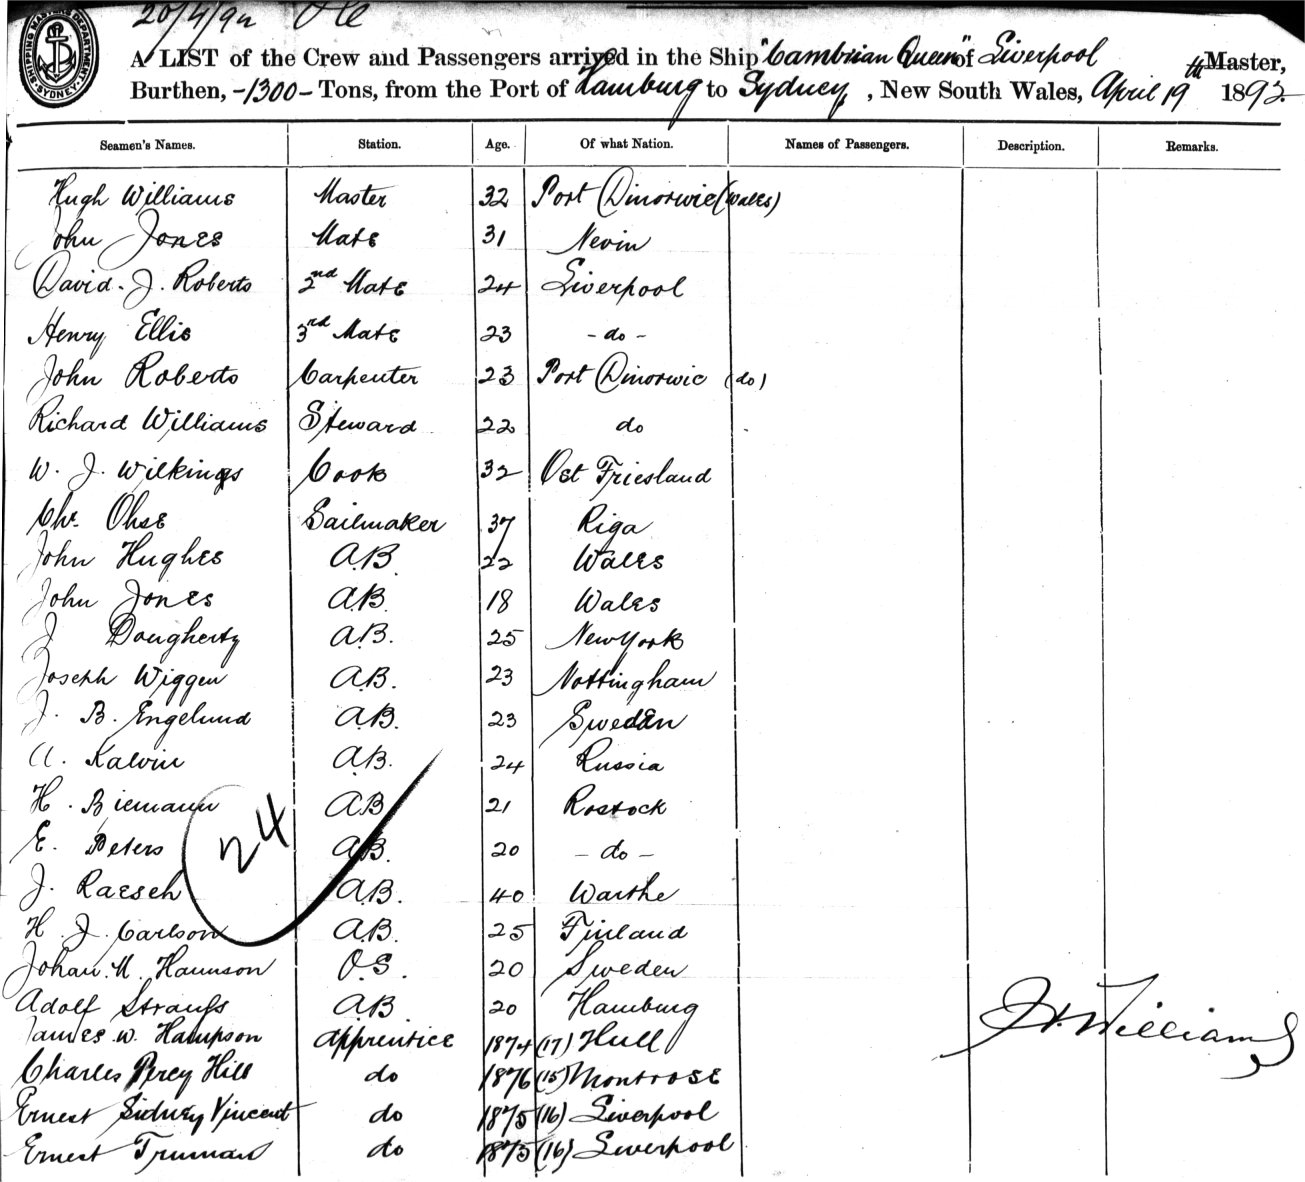 20/4/92
SHIPPING MASTERS DEPARTMENT SYDNEY
A LIST of the Crew and Passengers arrived in the Ship "Cambrian Queen" of Liverpool Master,
Burthen, -1300- Tons, from the Port of Hamburg to Sydney, New South Wales, April 19th 1892.
Seamen's Names. Station. Age. Of what Nation. Names of Passengers. Description. Remarks.
Hugh Williams Master 32 Port Dinorwic (Wales)
John Jones Mate 31 Nevin
David. J. Roberts 2nd Mate 24 Liverpool
Henry Ellis 3rd Mate 23 - do -
John Roberts Carpenter 23 Port Dinorwic (do)
Richard Williams Steward 22 do
W. J. Wilkings Cook 32 Ost Friesland
Chr. Ohse Sailmaker 37 Riga
John Hughes A.B. 22 Wales
John Jones A.B. 18 Wales
J Dougherty A.B. 25 New York
Joseph Wiggen A.B. 23 Nottingham
J. B. Engelund A.B. 23 Sweden
A. Kalvin A.B. 24 Russia
H. Biemann A.B 21 Rostock
E. Peters A.B. 20 - do -
24
J. Raesch A.B. 40 Warthe
H. J. Carlson A.B. 25 Finland
Johan. M. Haunson O.S. 20 Sweden
Adolf Strauss A.B. 20 Hamburg
James. W. Hampson Apprentice 1874 (17) Hull
Charles Percy Hill do 1876 (15) Montrose
Ernest Sidney Vincent do 1875 (16) Liverpool
Ernest Truman do 1875 (16) Liverpool
H. Williams